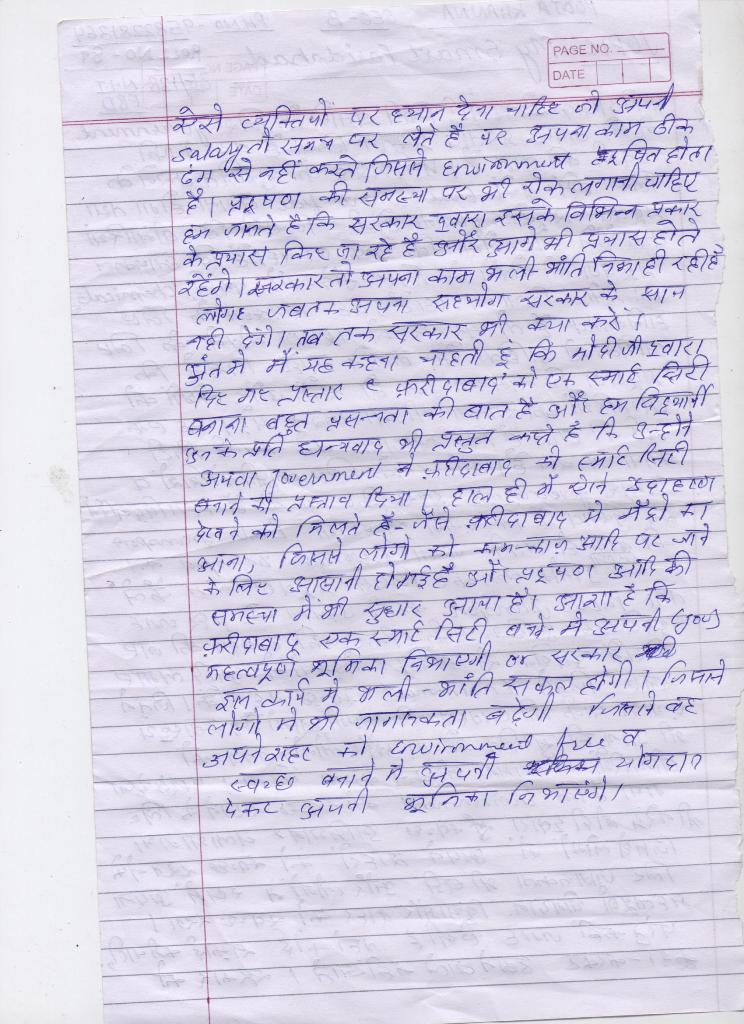 PAGE NO.
DATE
ऐसे व्यक्तियों पर ध्यान देना चाहिए जो अपनी
salary तो समय पर लेते है पर अपना काम ठीक
ढंग से नहीं करते जिससे environment दूषित होता
है। प्रदूषण की समस्या पर भी रोक लगानी चाहिए
हम जानते है कि सरकार द्वारा इसके विभिन्न प्रकार
के प्रयास किए जा रहे है और आगे भी प्रयास होते
रहेंगे। सरकार तो अपना काम भली-भांति निभा ही रही है
लोग जबतक अपना सहयोग सरकार के साथ
नही देंगे। तब तक सरकार भी क्या करें।
अंत मे मैं यह कहना चाहती हूं कि मोदी जी द्वारा
दिए गए प्रस्ताव फ़रीदाबाद को एक स्मार्ट सिटी
बनाना बहुत प्रसन्नता की बात है और हम विद्यार्थी
उनके प्रति धन्यवाद भी प्रस्तुत करते है कि उन्होने
अथवा government ने फ़रीदाबाद को स्मार्ट सिटी
बनाने का प्रस्ताव दिया। हाल ही में ऐसे उदाहरण
देखने को मिलते है - जैसे फ़रीदाबाद मे मैट्रो का
आना, जिससे लोगो को काम-काज आदि पर जाने
के लिए आसानी हो गई है और प्रदूषण आदि की
समस्या में भी सुधार आया है। आशा है कि
फ़रीदाबाद एक स्मार्ट सिटी बनने में अपनी (you)
महत्वपूर्ण भूमिका निभाएगी or सरकार
इस कार्य मे भली-भांति सफल होगी। जिससे
लोगो मे भी जागरूकता बढ़ेगी जिससे वह
अपने शहर को environment free व
स्वच्छ बनाने मे अपनी योगदान
देकर अपनी भूमिका निभाएंगे।